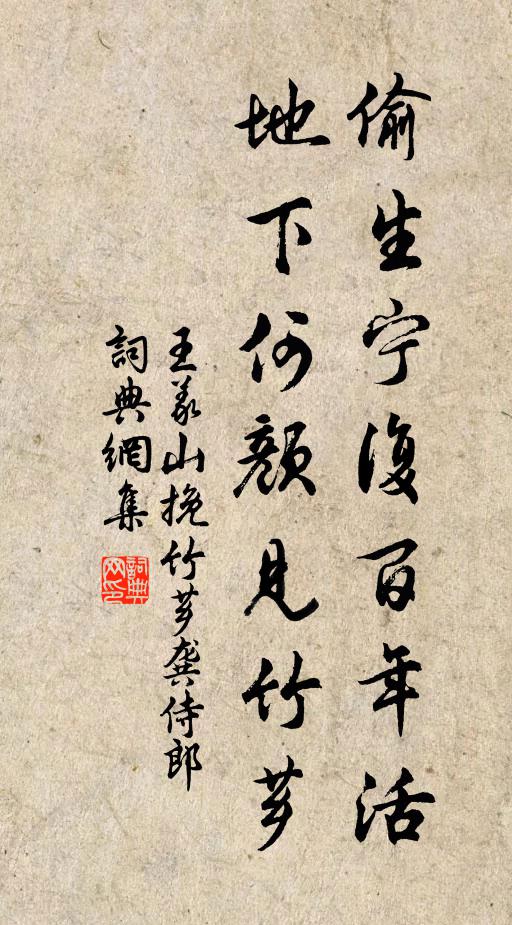 偷生宁復百年活
地下何顏見竹芗
王義山挽竹芗龔侍郎
詞典網集
詞典网印